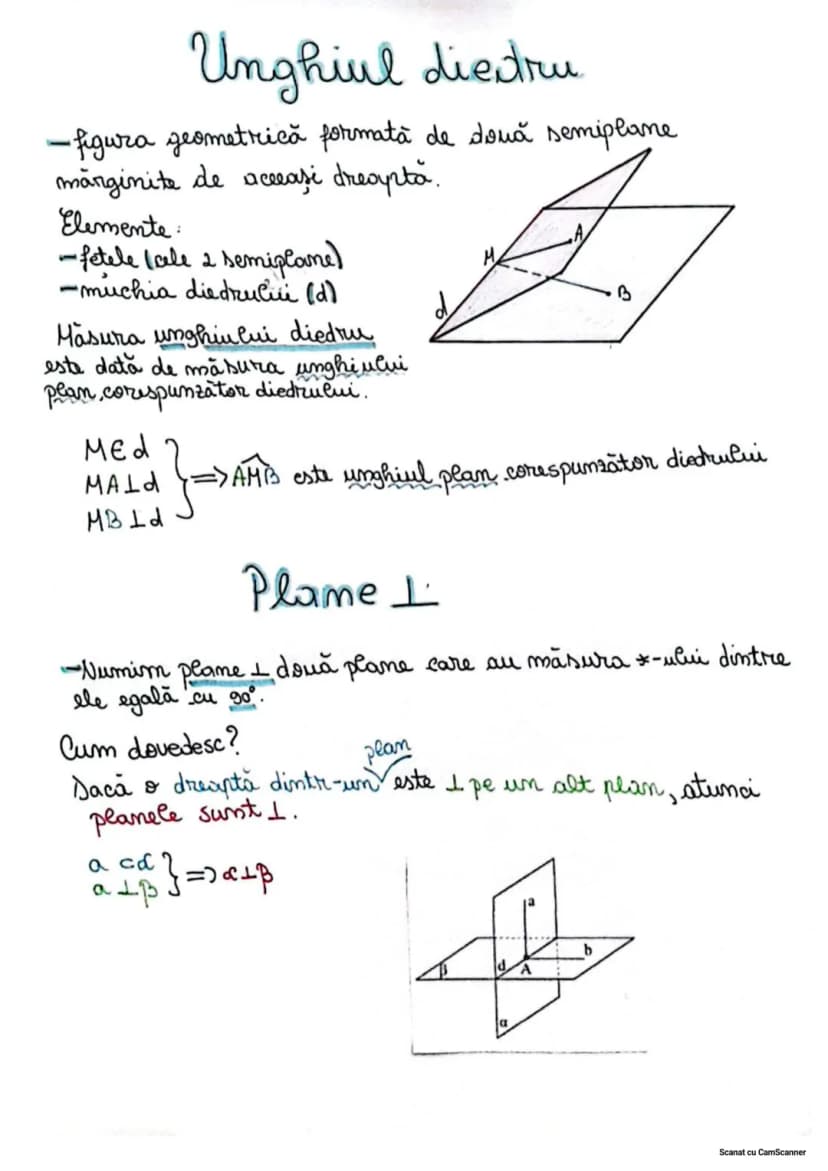 Unghiul diedru
-figura geometrică formată de două semiplane
mărginite de aceeași dreaptă.
Elemente:
-fețele (cele 2 semiplane)
-muchia diedrului (d)
A
M
B
d
Măsura unghiului diedru
este dată de măsura unghiului
plan corespunzător diedrului.
M∈d
MA⊥d } => AMB este unghiul plan corespunzător diedrului
MB⊥d
Plane ⊥
-Numim plane ⊥ două plane care au măsura ∢-ului dintre
ele egală cu 90°.
Cum dovedesc?
plan
Dacă o dreaptă dintr-un √ este ⊥ pe un alt plan, atunci
planele sunt ⊥.
a ⊂ α } => α⊥β
a ⊥ β
a
b
β
d
A
α
Scanat cu CamScanner